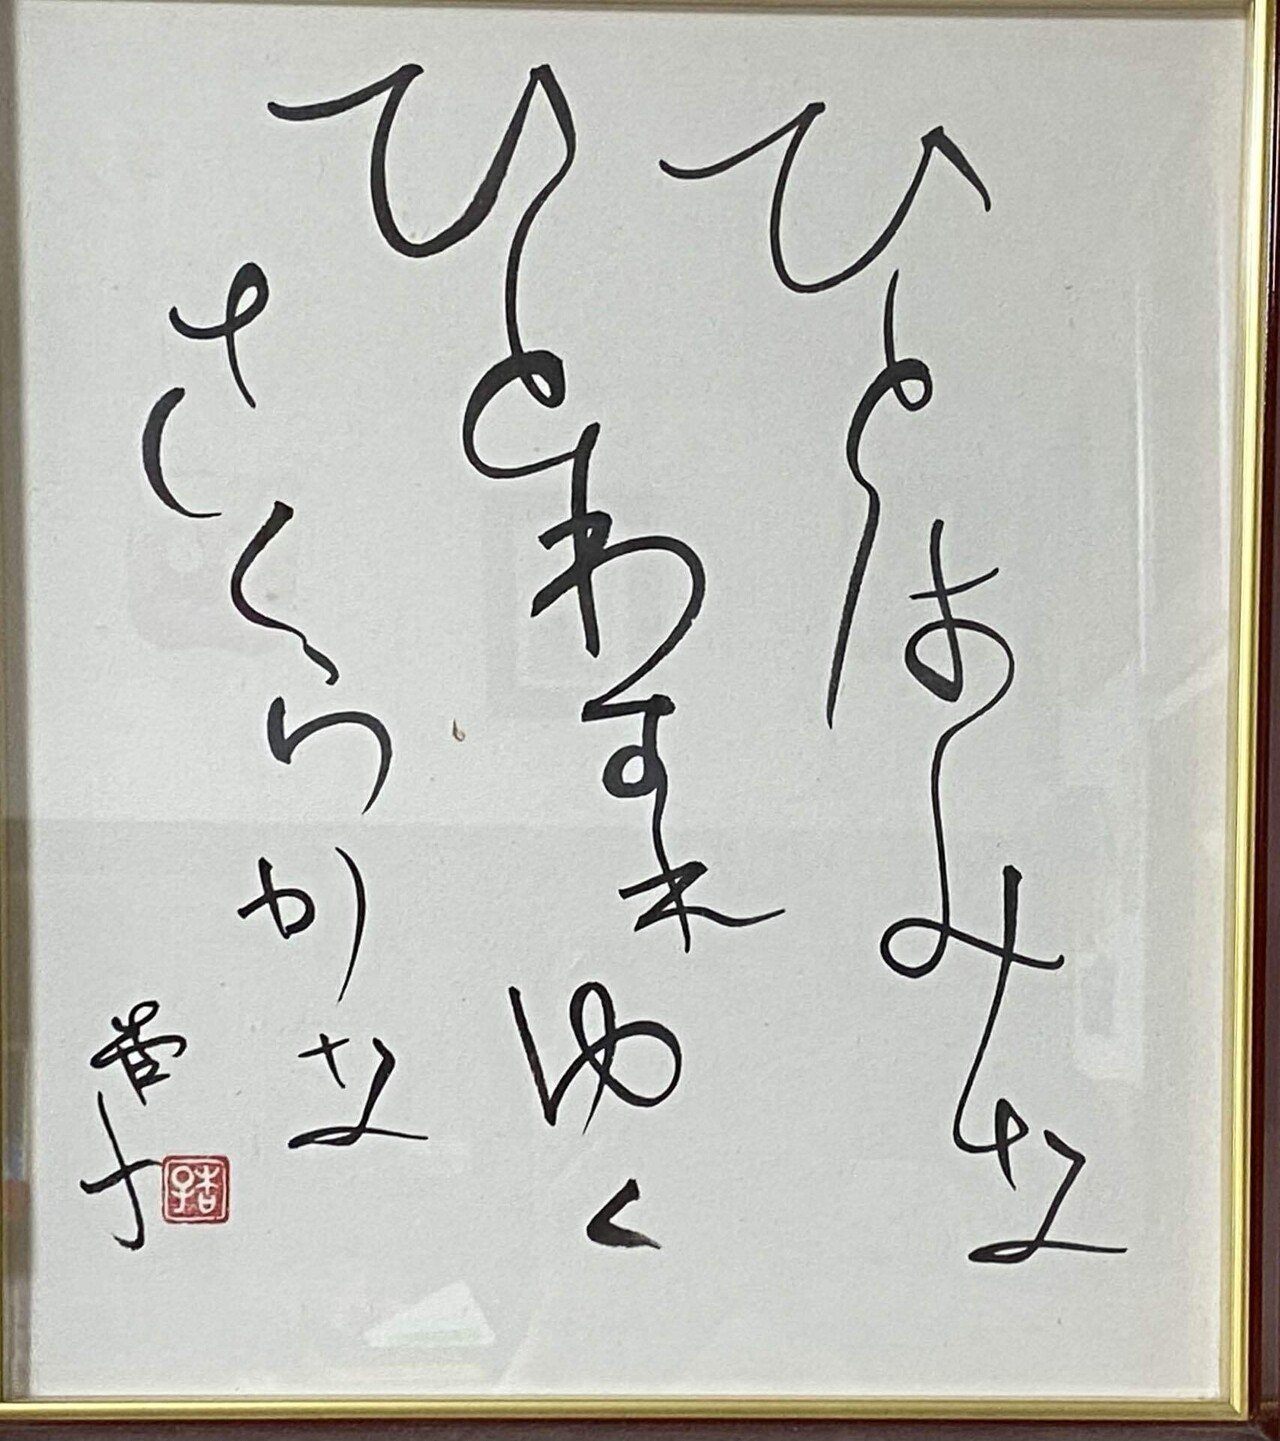 ひとはみな
ひとわすれゆく
さくらかな
杏子
杏子